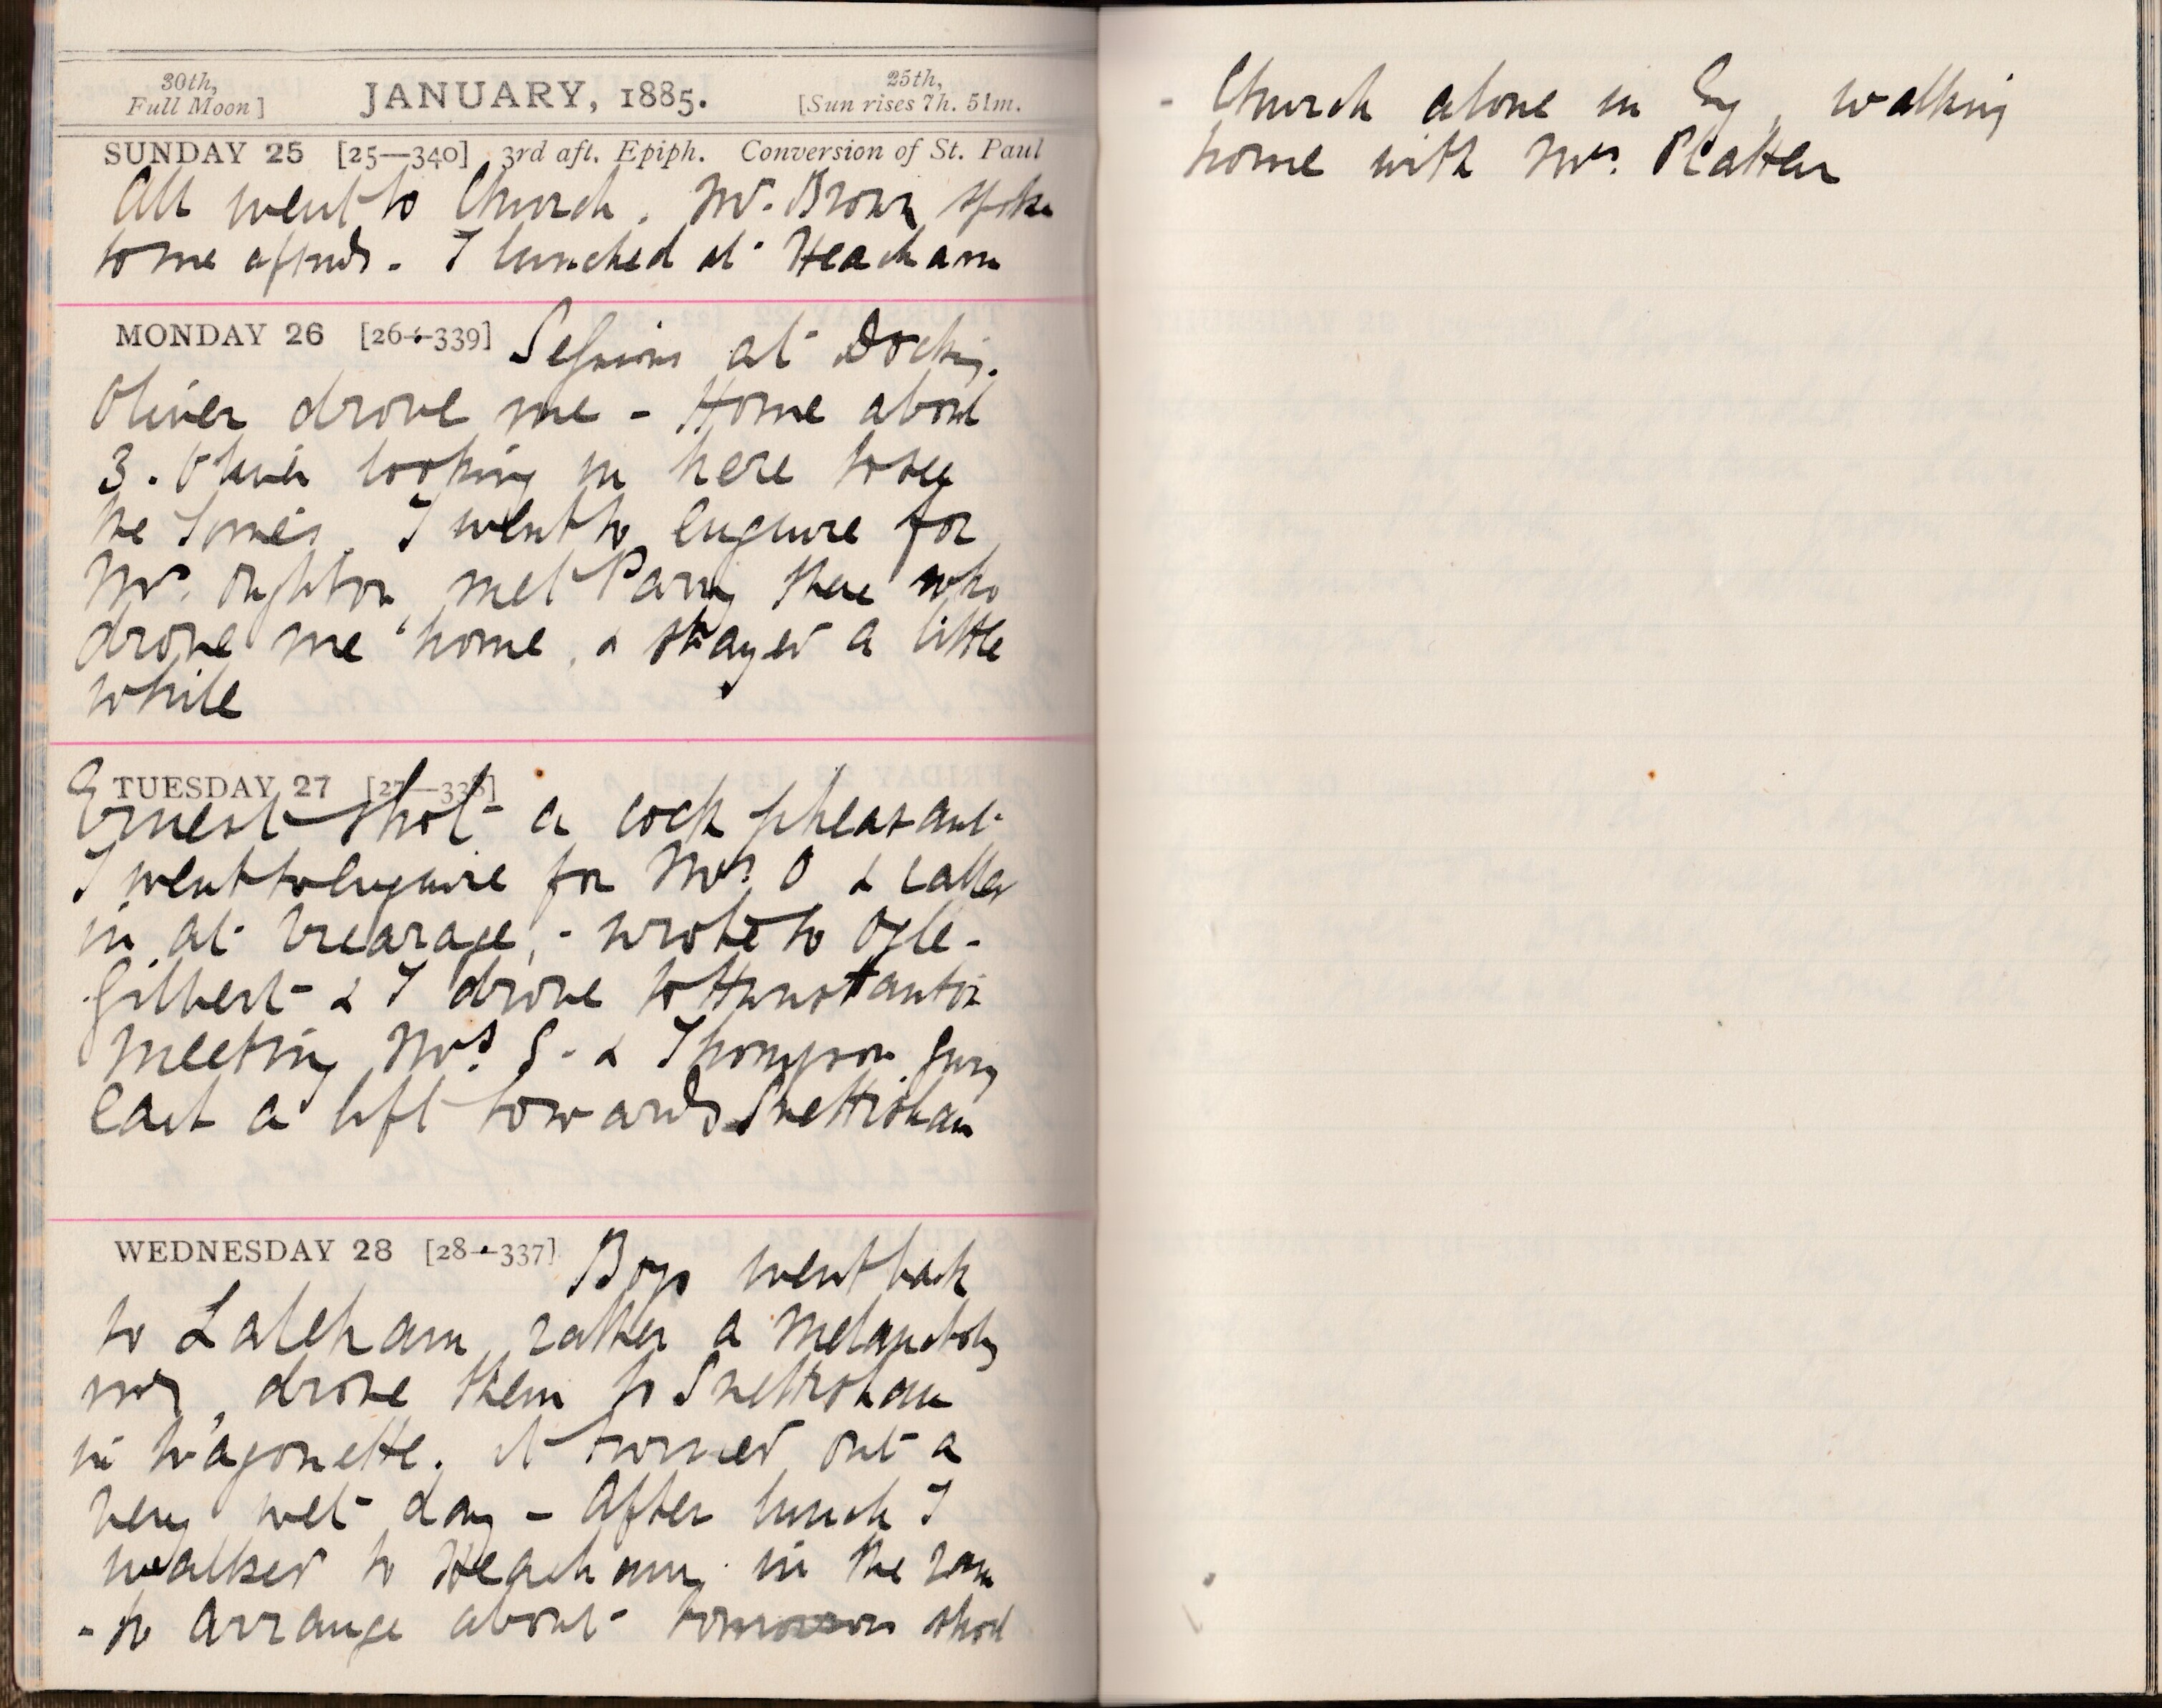 30th,
Full Moon]
JANUARY, 1885.
25th,
[Sun rises 7h. 51m.
SUNDAY 25 [25—340] 3rd aft. Epiph. Conversion of St. Paul
All went to Church. Mr. Brown spoke
to me aftwds. I lunched at Heacham
MONDAY 26 [26—339] Sessions at Docking.
Oliver drove me - Home about
3. Oliver looking in here to see
I went to enquire for
Mrs. Oughton, met Parry there who
drove me home, & stayed a little
while
TUESDAY 27 [27—338]
Ernest shot a cock pheasant
I went to enquire for Mrs. O & called
in at vicarage, - wrote to Ogle -
Gilbert & I drove to Hunstanton
meeting Mrs. S. & Thompson
each a lift towards Snettisham
WEDNESDAY 28 [28—337] Boys went back
to Laleham rather a melancholy
drove them to Snettisham
in wagonette. It turned out a
very wet day - After lunch I
walked to Heacham in the rain
- to arrange about tomorrows shoot
- Church alone in Evg, walking
home with Mrs. Platten